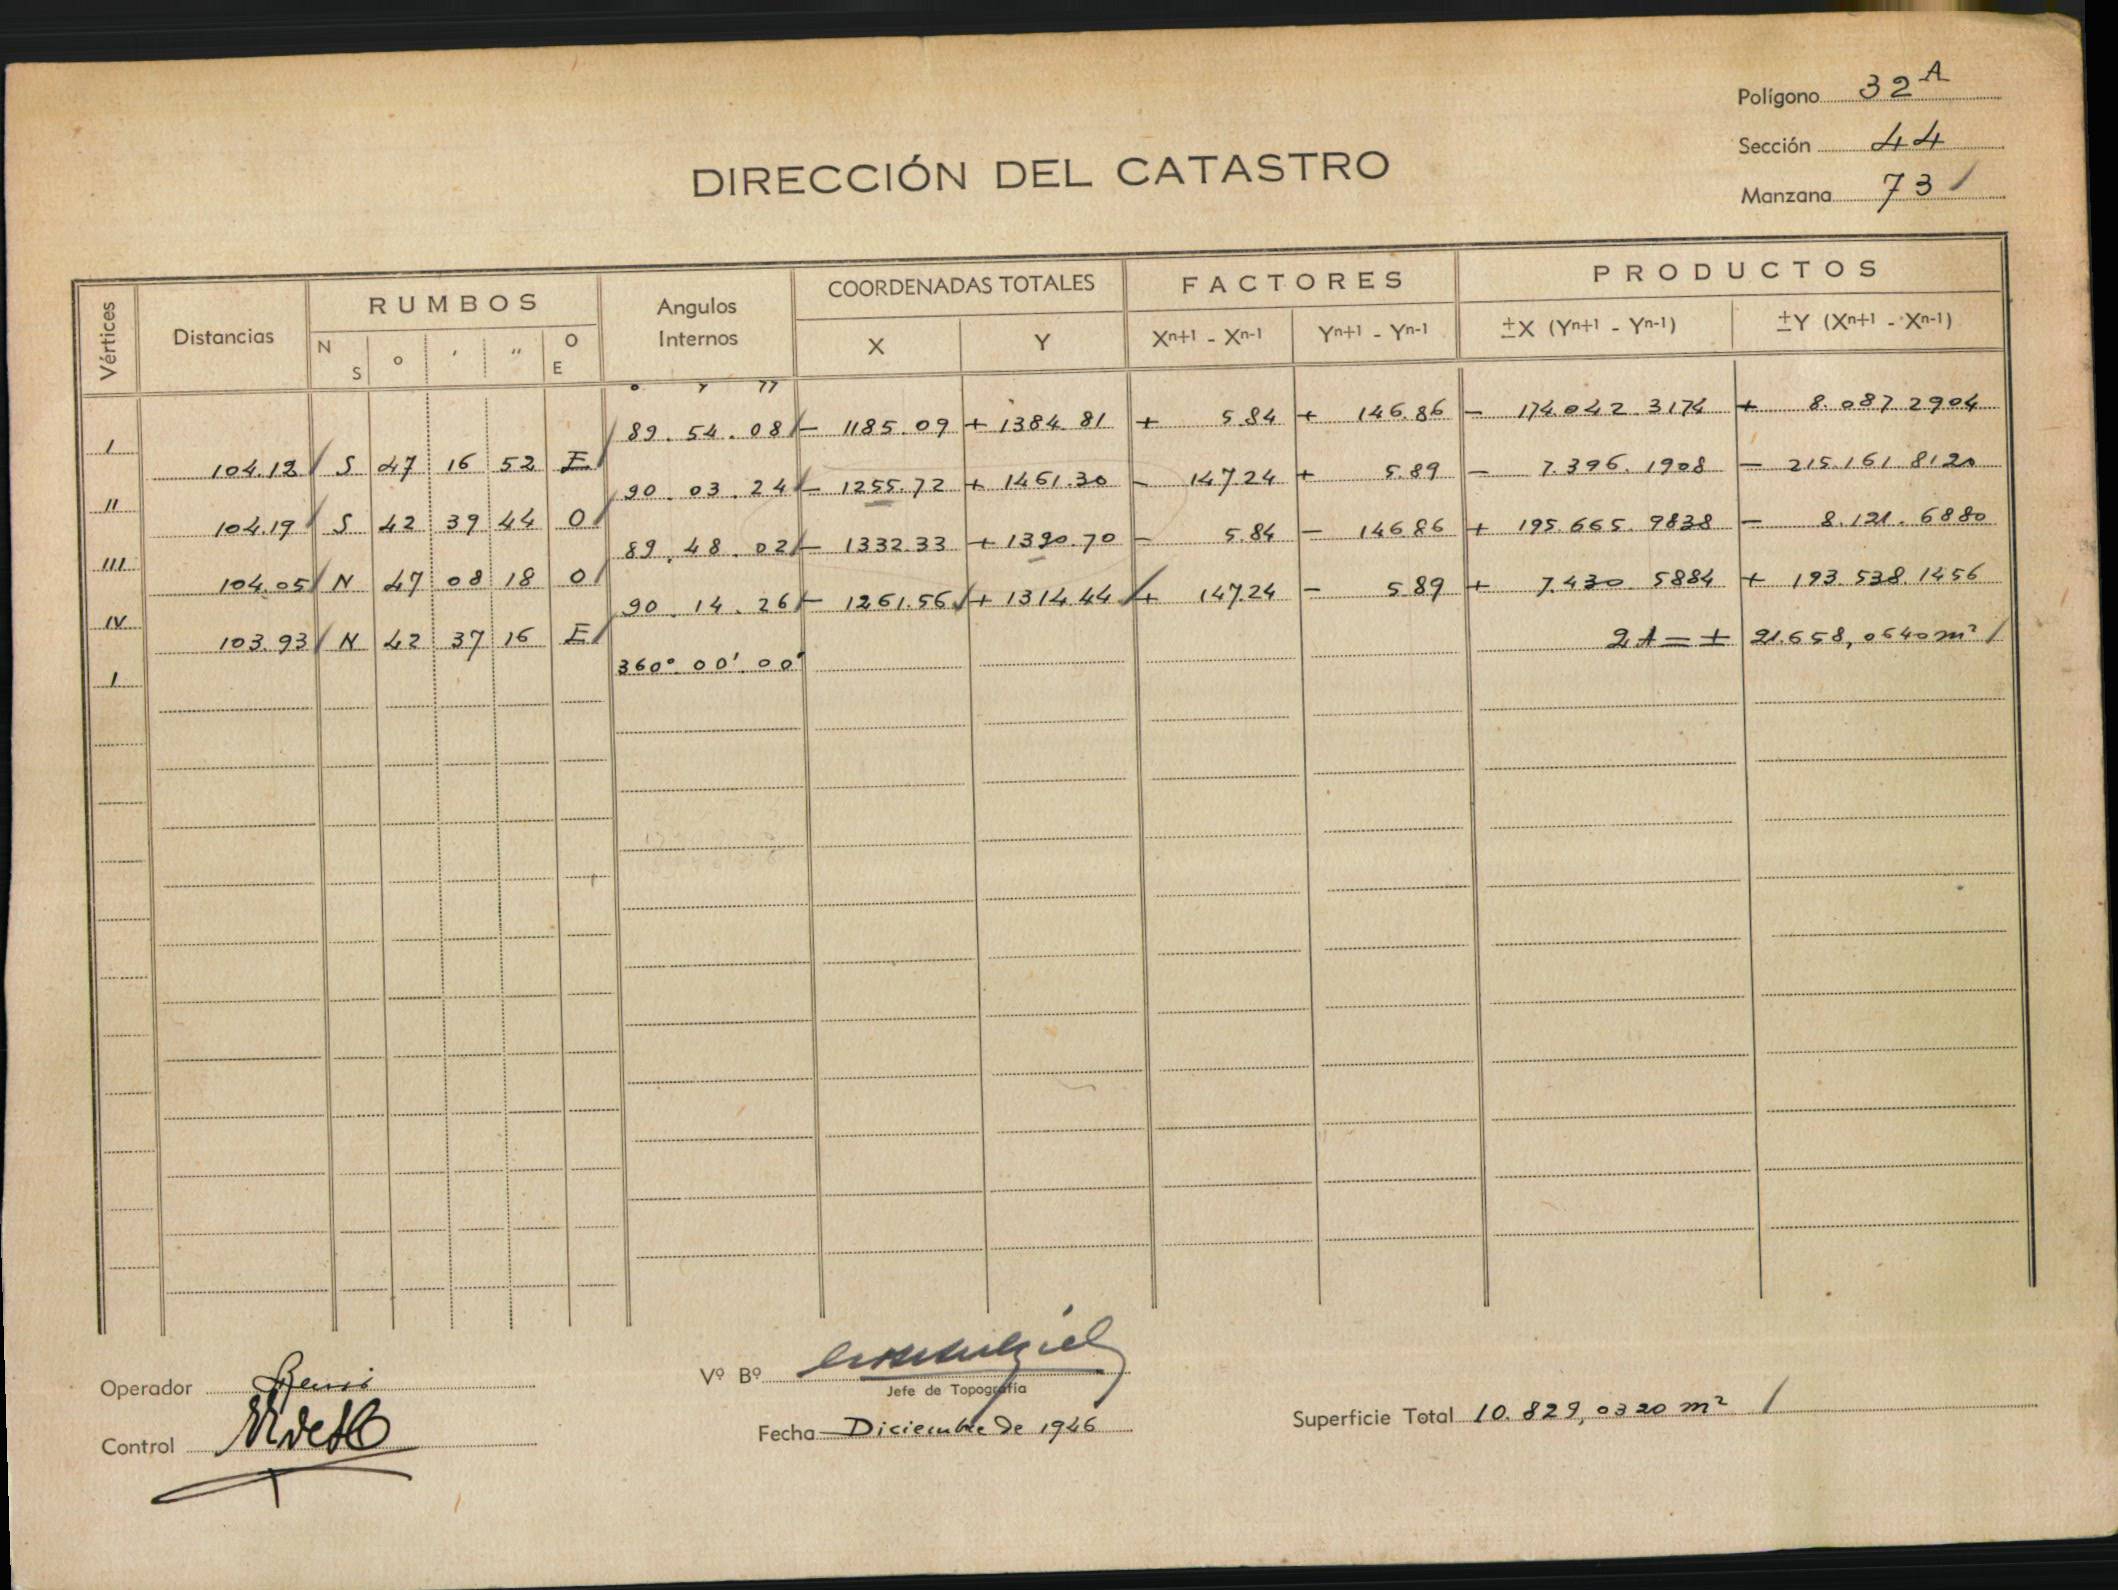 Polígono 32 A
Sección 44
Manzana 73 /
DIRECCIÓN DEL CATASTRO
Vértices Distancias RUMBOS Angulos Internos COORDENADAS TOTALES FACTORES PRODUCTOS
N S ° ' " O E X Y Xn+1 - Xn-1 Yn+1 - Yn-1 ±X (Yn+1 - Yn-1) ±Y (Xn+1 - Xn-1)
° ' "
I 89. 54. 08 / - 1185.09 + 1384.81 + 5.84 + 146.86 - 174.042.3174 + 8.087.2904
104.12 / S 47 16 52 E /
II 90. 03. 24 / - 1255.72 + 1461.30 - 147.24 + 5.89 - 7.396.1908 - 215.161.8120
104.19 / S 42 39 44 O /
III 89. 48. 02 / - 1332.33 + 1390.70 - 5.84 - 146.86 + 195.665.9838 - 8.121.6880
104.05 / N 47 08 18 O /
IV 90. 14. 26 / - 1261.56 / + 1314.44 / + 147.24 - 5.89 + 7.430.5884 + 193.538.1456
103.93 / N 42 37 16 E /
I 360°. 00'. 00" 2A = ± 21.658,0640 m² /
Operador
Control
Vº Bº
Jefe de Topografía
Fecha Diciembre de 1946
Superficie Total 10.829,0320 m² /